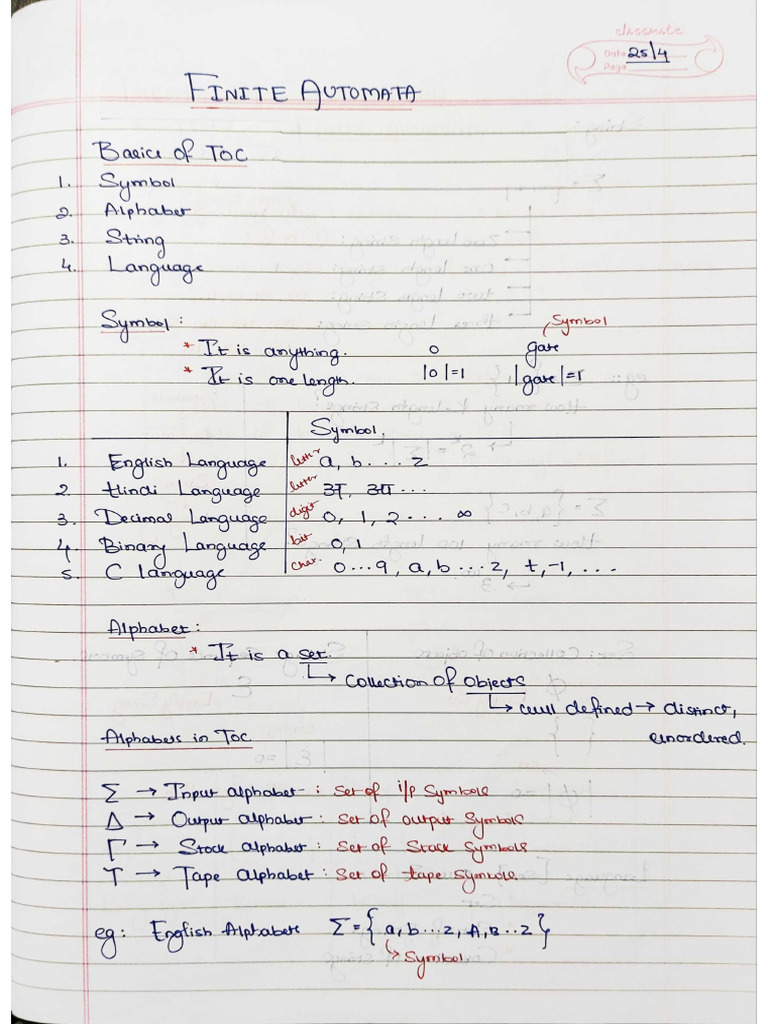 classmate
Date 25/4
Page
FINITE AUTOMATA
Basics of TOC
1. Symbol
2. Alphabet
3. String
4. Language
Symbol:
Symbol
* It is anything. 0 gate
* It is one length. |0|=1 |gate|=1
Symbol.
1. English Language letter a, b...z
2. Hindi Language letter अ, आ...
3. Decimal Language digit 0, 1, 2... ∞
4. Binary Language bit 0, 1
5. C language char. 0...9, a, b...z, +, -, ...
Alphabet:
* It is a set.
↳ Collection of objects
↳ well defined → distinct,
unordered.
Alphabets in TOC
Σ → Input alphabet : Set of i/p symbols
Δ → Output alphabet : Set of output symbols
Γ → Stack alphabet : Set of Stack symbols
T → Tape alphabet : Set of tape symbols.
eg: English Alphabets Σ = {a, b...z, A, B..Z}
↳ Symbol